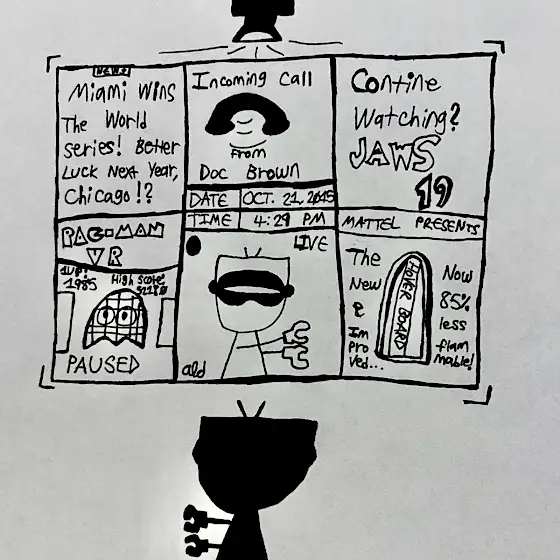 NEWS
Miami Wins
The World
series! Better
Luck Next Year,
Chicago!?
Incoming Call
from
Doc Brown
Contine
Watching?
JAWS
19
DATE OCT. 21, 2015
TIME 4:29 PM
PAC-MAN
VR
1UP!
1985
High score
52180
PAUSED
LIVE
ald
MATTEL PRESENTS
The
New
&
Im
Pro
Ved...
HOVER BOARD
Now
85%
less
flam
mable!